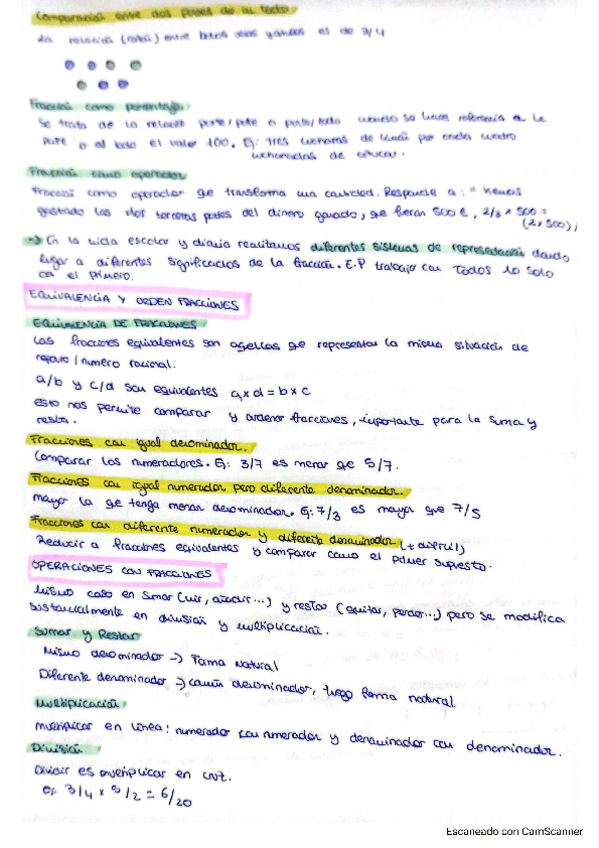 Comparación entre dos partes de un todo
La relación (ratio) entre botes rojos y ahcos es de 3/4
Fracción como porcentaje.
Se trata de la relación parte/parte o parte/todo cuando se hace referencia a la
parte o al todo el valor 100. Ej: Tres cucharas de limón por cada cuatro
cucharadas de azúcar.
Fracción como operador
Fracción como operador que transforma una cantidad. Responde a: "hemos
gastado las dos terceras partes del dinero ganado, que fueran 500 €, 2/3 x 500 =
(2 x 500)/
-> En la vida escolar y diaria realizamos diferentes sistemas de representación dando
lugar a diferentes significados de la fracción. E.P trabaja con todos no solo
con el primero.
EQUIVALENCIA Y ORDEN FRACCIONES
EQUIVALENCIA DE FRACCIONES
Las fracciones equivalentes son aquellas que representan la misma situación de
reparto / número racional.
a/b y c/d son equivalentes a x d = b x c
Esto nos permite comparar y ordenar fracciones, importante para la suma y
resta.
Fracciones con igual denominador.
Comparar los numeradores. Ej: 3/7 es menor que 5/7.
Fracciones con igual numerador pero diferente denominador.
mayor la que tenga menor denominador. Ej: 7/3 es mayor que 7/5
Fracciones con diferente numerador y diferente denominador (+ difícil)
Reducir a fracciones equivalentes y comparar como el primer supuesto.
OPERACIONES CON FRACCIONES
Mismo caso en sumar (unir, añadir...) y restar (quitar, perder...) pero se modifica
sustancialmente en división y multiplicación.
Sumar y Restar
Mismo denominador -> Forma Natural
Diferente denominador -> común denominador, luego forma natural
Multiplicación
multiplicar en línea: numerador con numerador y denominador con denominador.
División
Dividir es multiplicar en cruz.
Ej: 3/4 x 5/2 = 6/20
Escaneado con CamScanner